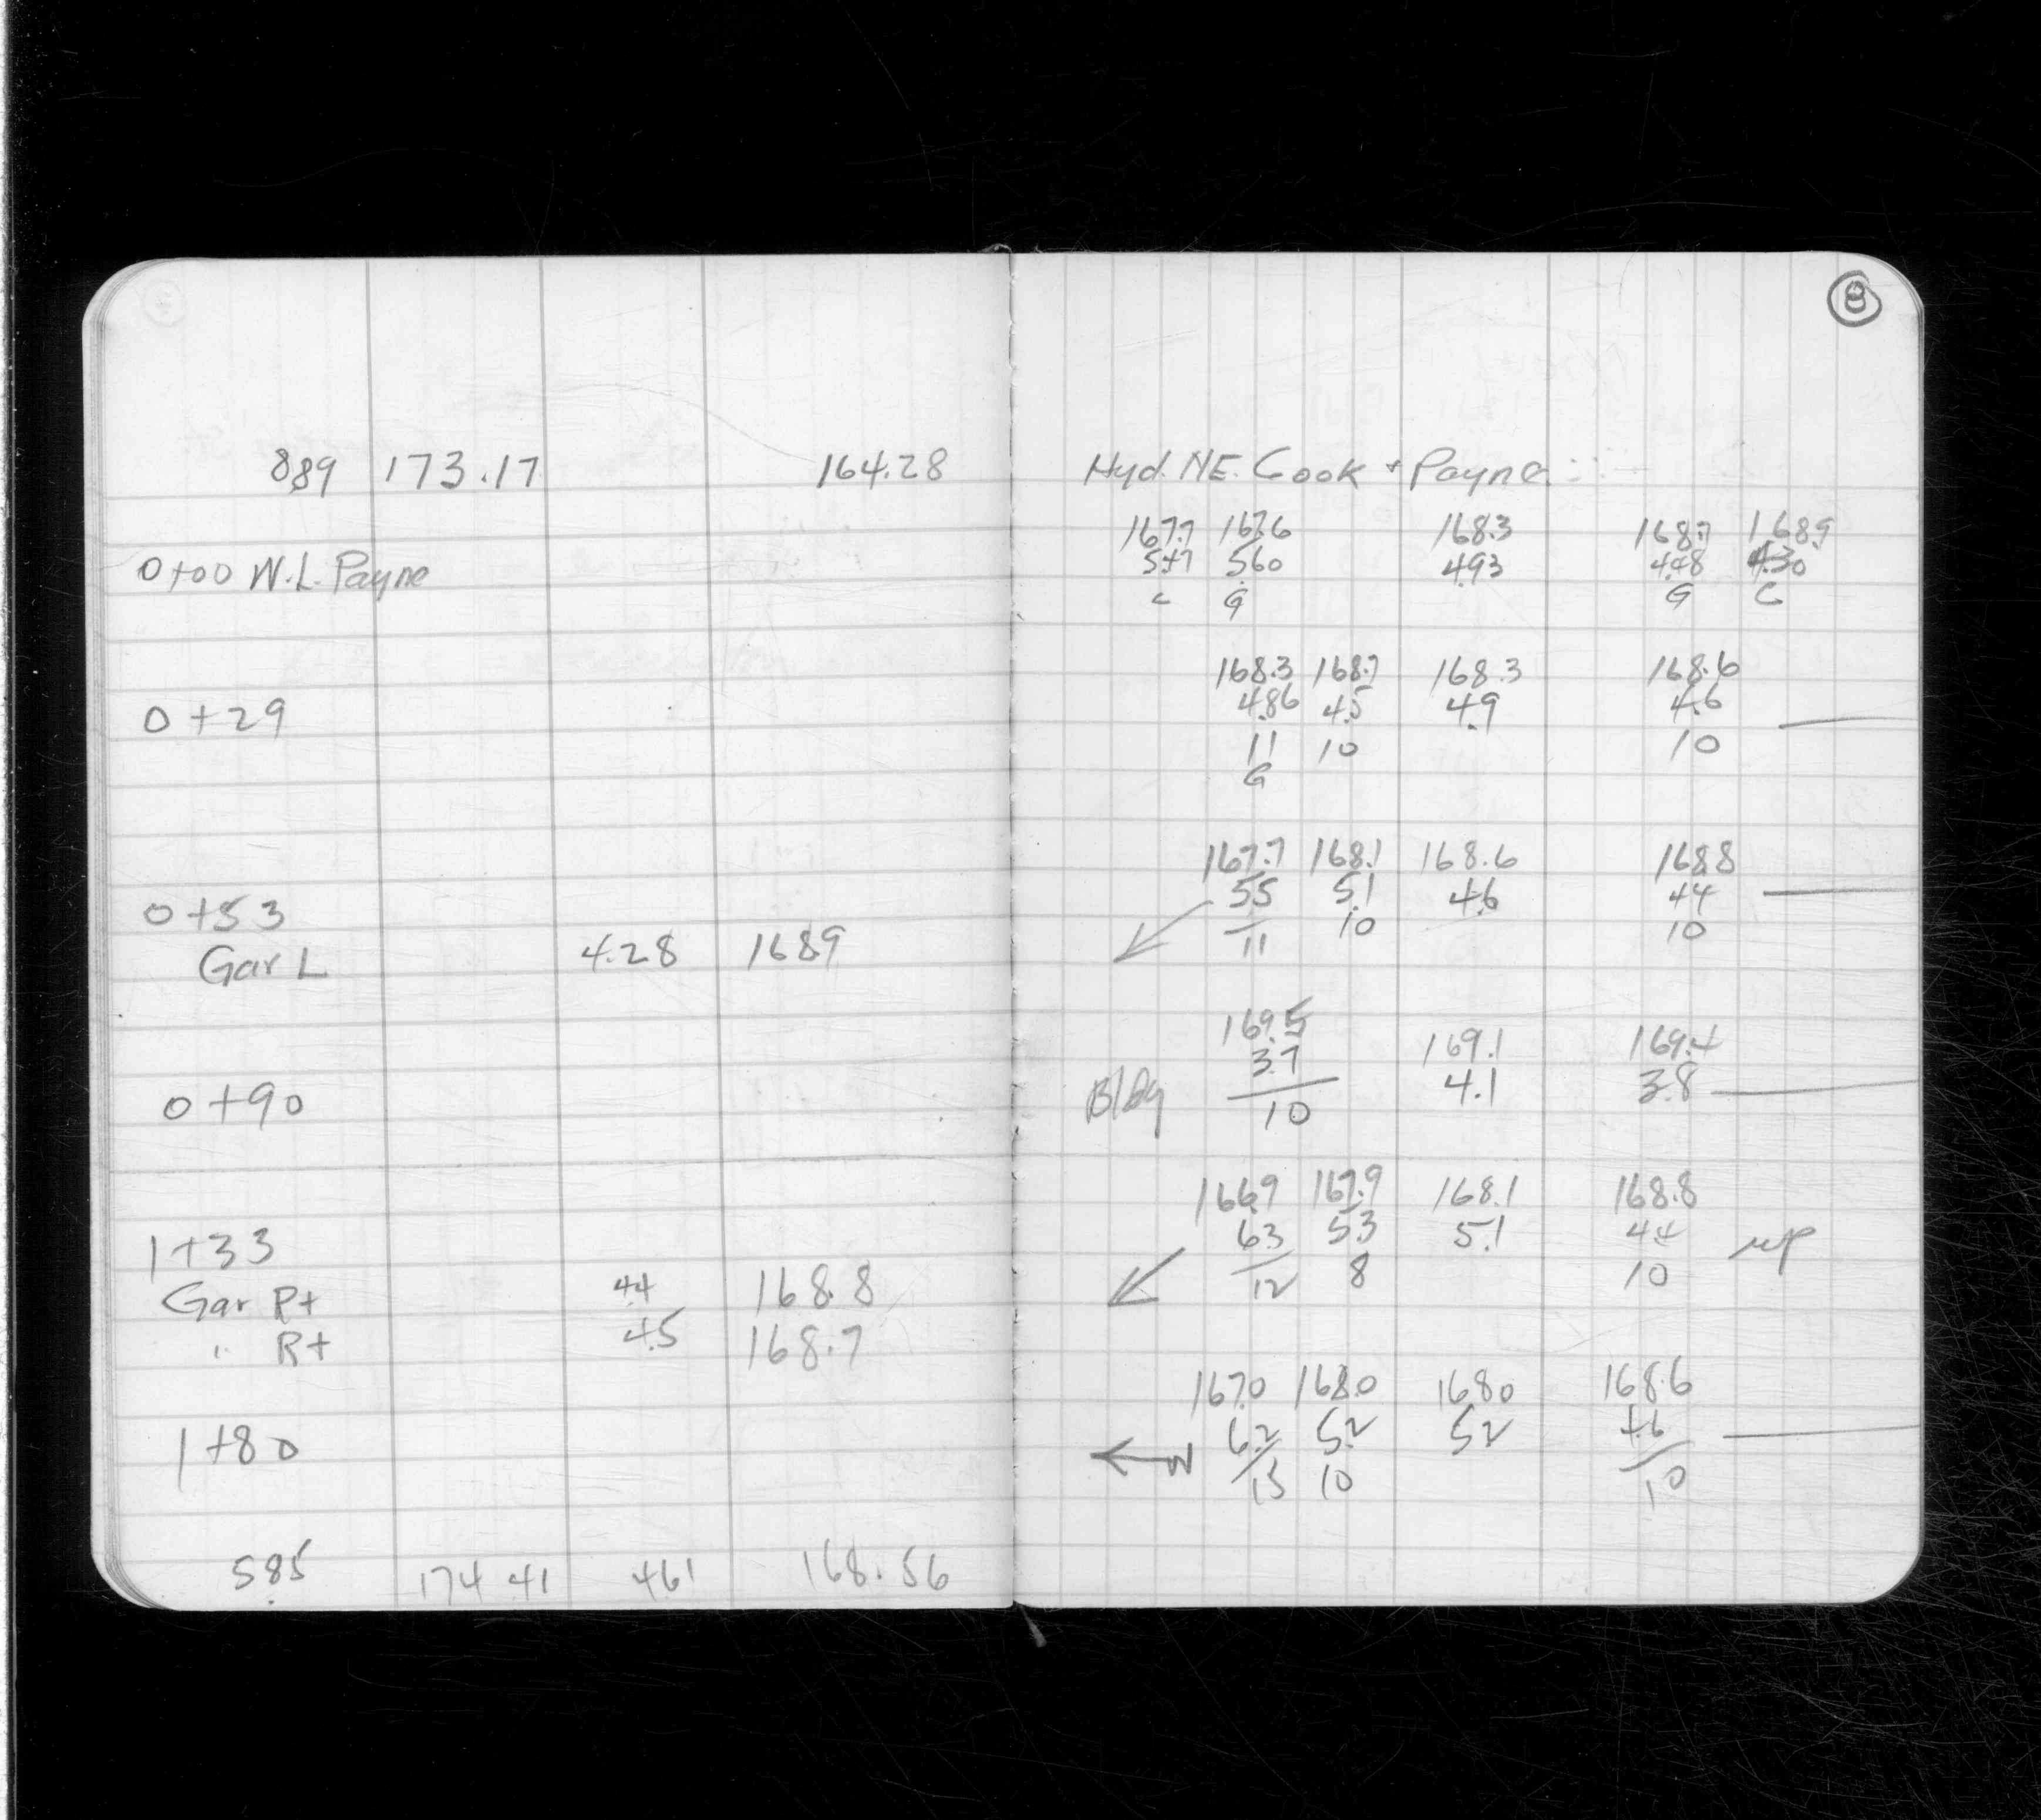 8
8.89 173.17 164.28 Hyd. N.E. Cook + Payne
167.7 167.6 168.3 168.7 168.9
0+00 W.L. Payne 5.47 5.60 4.93 4.48 4.30
C G G C
168.3 168.7 168.3 168.6
0+29 4.86 4.5 4.9 4.6
11 10 10
G
167.7 168.1 168.6 168.8
0+53 5.5 5.1 4.6 4.4
11 10 10
Gar L 4.28 168.9
169.5 169.1 169.4
3.7 4.1 3.8
0+90 Bldg 10
166.9 167.9 168.1 168.8
1+33 6.3 5.3 5.1 4.4
12 8 10
Gar Rt 4.4 168.8
" Rt 4.5 168.7
167.0 168.0 168.0 168.6
1+80 6.2 5.2 5.2 4.6
15 10 10
5.85 174.41 4.61 168.56